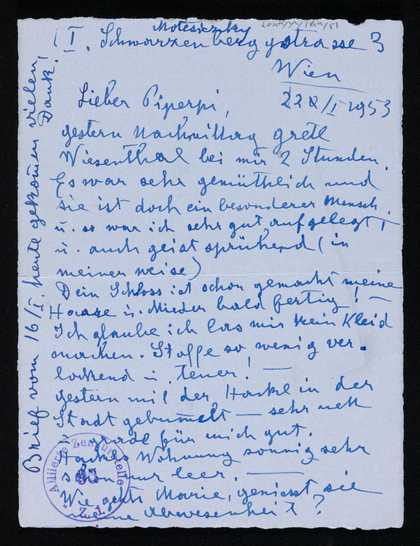 Motesiczky
I. Schwarzenbergstrasse 3
Wien
22 I 1953
Lieber Piperpi,
gestern Nachmittag Gretl
Wiesenthal bei mir 2 Stunden,
Es war sehr gemüthlich und
sie ist doch ein besonderer Mensch
u. so war ich sehr gut aufgelegt
u. auch geistsprühend (in
meiner weise)
Dein Schloss ist schon gemacht meine
u. Mieder bald fertig! —
Ich glaube ich las mir kein Kleid
machen. Stoffe so wenig ver-
lockend u. teuer! —
gestern mit der in der
Stadt gebummelt — sehr nett
für mich gut.
Wohnung sonnig sehr
leer. —
Wie geht Marie, geniesst sie
meine Abwesenheit?
Brief vom 16/I. heute gekommen vielen
Dank!
Alliierte Zensurstelle